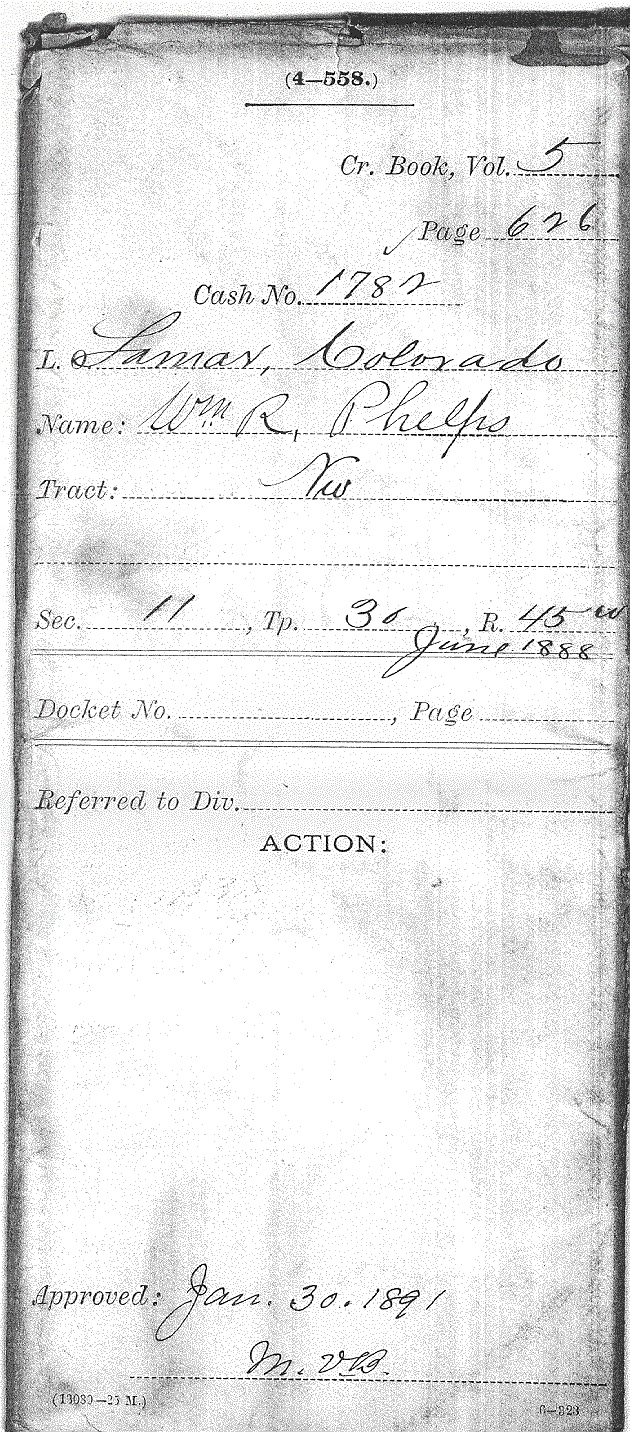 (4—558.)
Cr. Book, Vol. 5
Page 626
Cash No. 1782
L. O. Lamar, Colorado
Name: Wm R. Phelps
Tract: Nw
Sec. 11, Tp. 30, R. 45 w
June 1888
Docket No. , Page
Referred to Div.
ACTION:
Approved: Jan. 30. 1891
M. V.B.
(13030—25 M.) 6—323